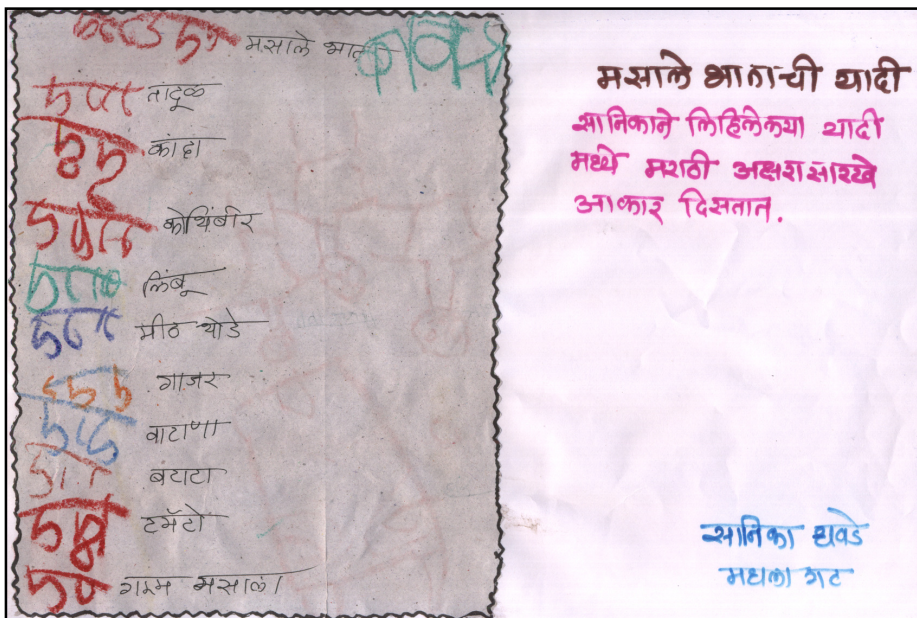 मसाले भात
तादूळ
कांदा
कोथिंबीर
लिंबू
मीठ थोडे
गाजर
वाटाणा
बटाटा
टमॅटो
गरम मसाला
मसाले भाताची यादी
सानिकाने लिहिलेल्या यादी
मध्ये मराठी अक्षरासारखे
आकार दिसतात.
सानिका धवडे
मधला गट